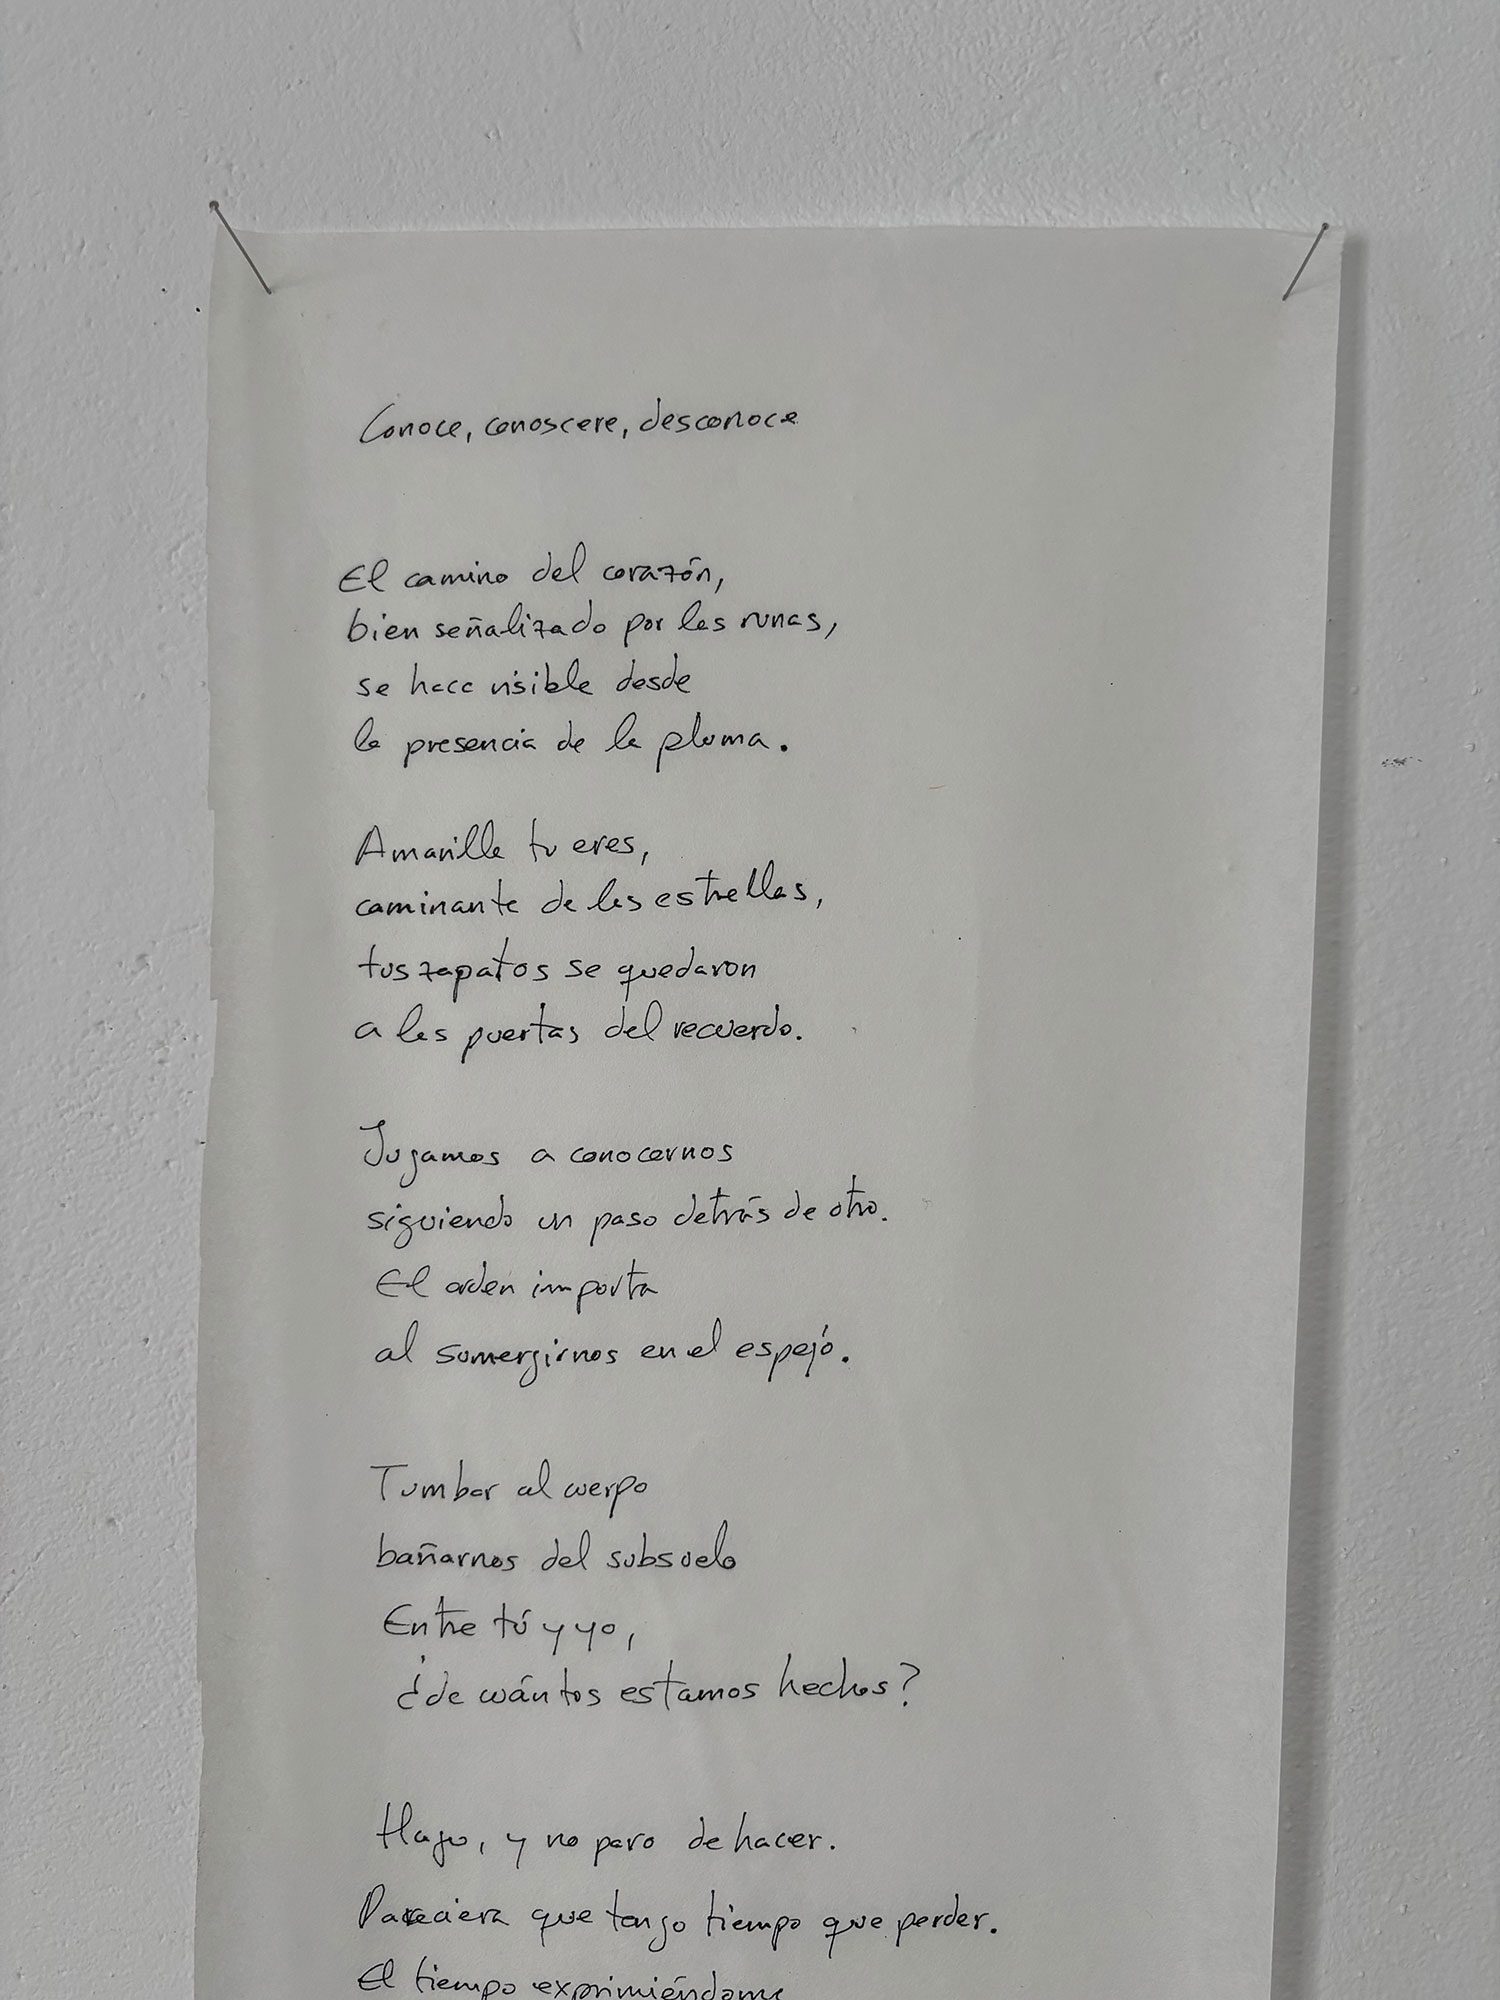 Conoce, conoscere, desconoce
El camino del corazón,
bien señalizado por las runas,
se hace visible desde
la presencia de la pluma.
Amarilla tu eres,
caminante de las estrellas,
tus zapatos se quedaron
a las puertas del recuerdo.
Jugamos a conocernos
siguiendo un paso detrás de otro.
El orden importa
al sumergirnos en el espejo.
Tumbar al cuerpo
bañarnos del subsuelo
Entre tú y yo,
¿de cuántos estamos hechos?
Hago, y no paro de hacer.
Pareciera que tengo tiempo que perder.
El tiempo exprimiéndome